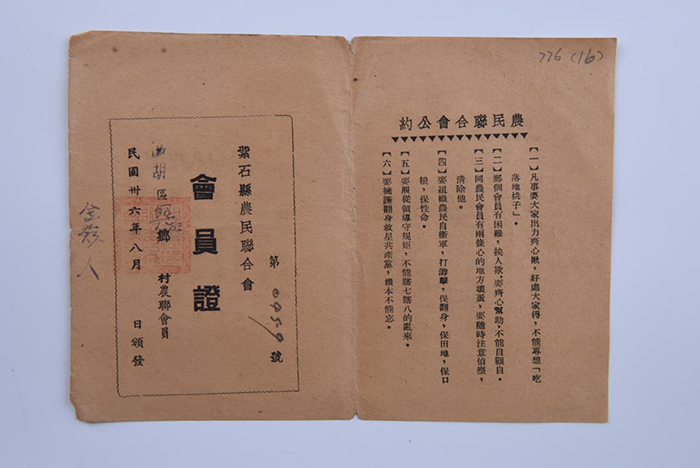 776(16)
農民聯合會公約
【一】凡事要大家出力齊心㨃,好處大家得,不能專想「吃
落地桃子」。
【二】那個會員有困難,挨人欺,要齊心幫助,不能自顧自。
【三】同農民會員有兩條心的地方壞蛋,要隨時注意偵察,
清除他。
【四】要組織農民自衛軍,打游擊,保翻身,保田地,保口
糧,保性命。
【五】要服從領導守規矩,不能瞎七瞎八的亂來。
【六】要擁護翻身救星共產黨,根本不能忘。
第0959號
紫石縣農民聯合會
會員證
曲胡區鄉村農聯會員
民國卅六年八月 日頒發